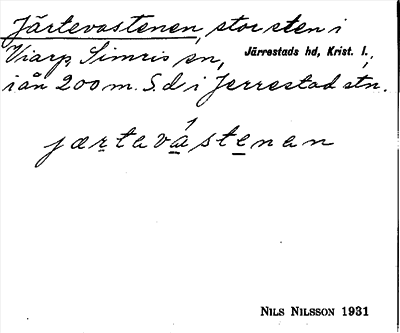 Järtevastenen, stor sten i
Viarp Simris sn, Järrestads hd, Krist. l.,
i ån 200 m. S. d. i Jerrestad stn.
jærtavástenan
NILS NILSSON 1931